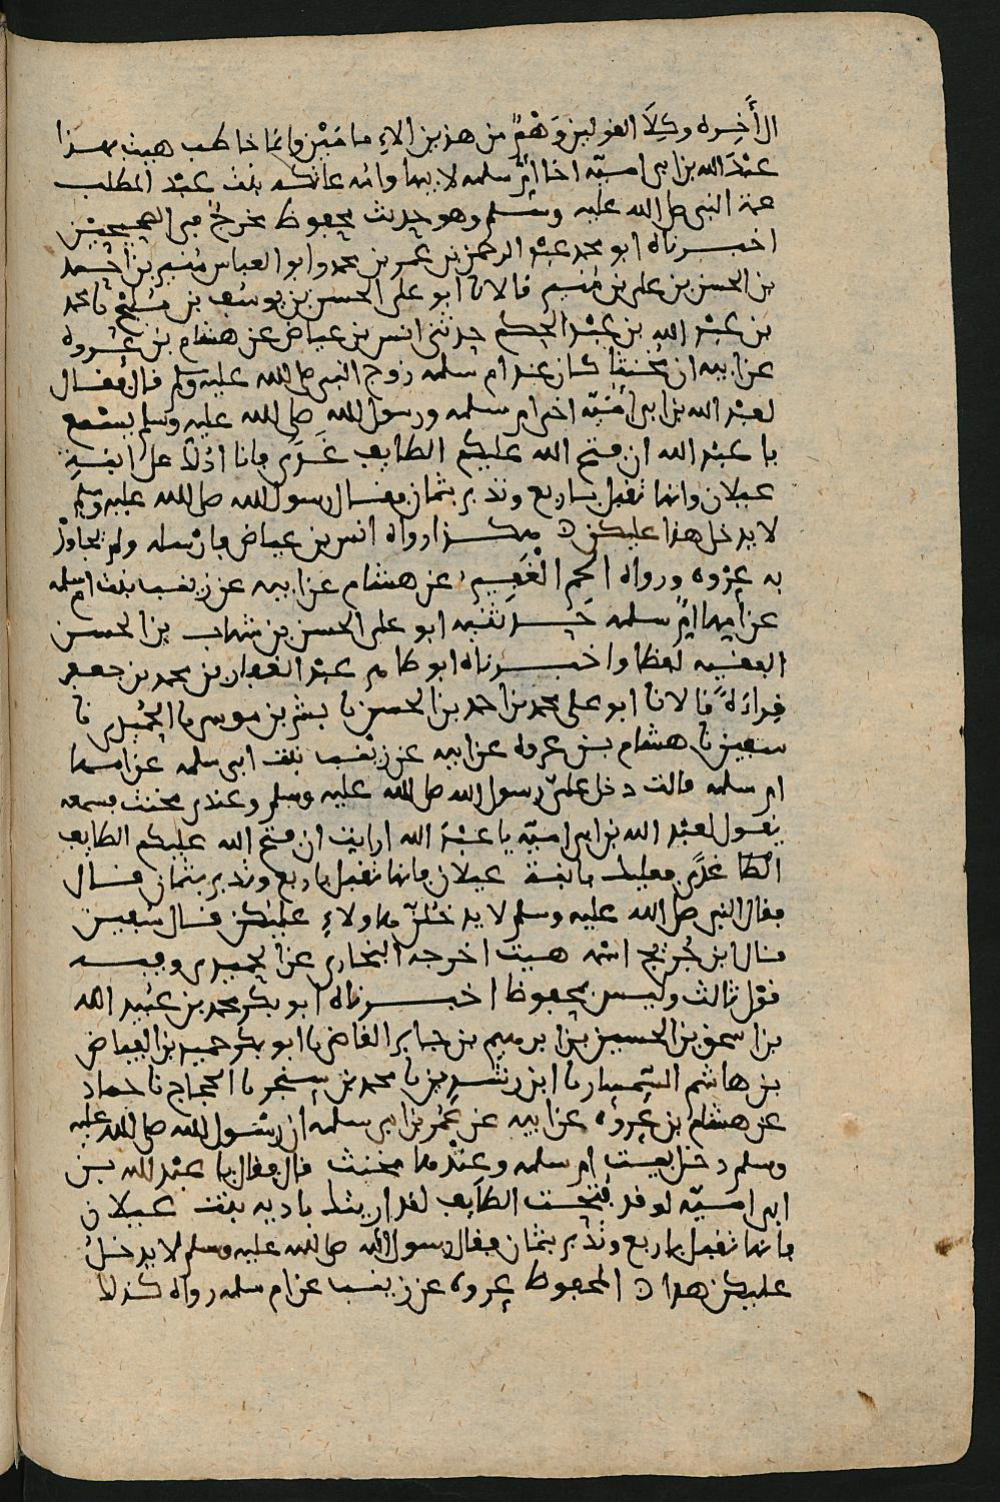 الأَخِره وكِلَا القولين وَهْمٌ من هذين الا ما مَيْز وانما خاطب هيث بهذا
عبْدَ الله بن ابى اميّه اخا امّ سلمه لابيها وامه عاتكه بنت عبْد المطلب
عمة النبى صلى الله عليه وسلم وهو حديث محفوظ مخرج فى الصحيحيْن
اخبرناه ابو محمد عبْد الرحمن بن عمر بن محمد وابو العباس مُنير بن احْمد
بن الحسن بن على بن مُنير قالا نا ابو على الحسن بن يوسف بن مليْح نا محمد
بن عبْد الله بن عبْد الحكم حدثنى انس بن عياض عن هشام بن عُروه
عن ابيه ان مخنثًا كان عند ام سلمه زوج النبى صلى الله عليه وسلم قال فقال
لعبْد الله بن ابى اميّه اخى ام سلمه ورسول الله صلى الله عليه وسلم يسْمع
يا عبْد الله ان فتح الله عليكم الطايف غَدًى فانا ادُلك على ابنة
غيلان وانها تقبل باربع وتدْبر بثمان فقال رسول الله صلى الله عليه وسلم
لا يدخل هذا عليكن ٥ هكذا رواه انس بن عياض فارْسله ولم يجاوزْ
به عرْوه ورواه الجم الغَفِير عن هشام عن ابيه عن زينب بنت ام سلمه
عن امها امّ سلمه حَدثنيه ابو على الحسن بن شهاب بن الحسن
الفقيه لفظا واخبرناه ابو طاهر عبْد الغفار بن محمد بن جعفر
قِراءَةً قالا نا ابو على محمد بن احمد بن الحسن نا بشر بن موسى نا الحُميدى نا
سفين نا هشام بن عروه عن ابيه عن زينب بنت ابى سلمه عن امها
ام سلمه قالت دخل علىّ رسول الله صلى الله عليه وسلم وعندى مخنث فسمعه
يقول لعبْد الله بن ابى اميّه يا عبْدَ الله ارايت ان فتح الله عليكم الطايف
غدًى فعليك بابنة غيلان فانها تقبل باربع وتدبر بثمان قال
فقال النبى صلى الله عليه وسلم لا يدخلنّ هاولاءِ عليْكن قال سُفين
قال ابن جُريْج اسْمه هيث اخرجه البخارى عن الحميدى وفيه
قوْل ثالث وليس بمحفوظ اخبرناه ابو بكر محمد بن عُبيد الله
بن اسحق بن الحسين بن ابرهيم بن جابر القاضى نا ابو بكر حميد بن الفياض
بن هاشم السّمسار نا ابن رشدين نا محمد بن سنجر نا الحجاج نا حماد
عن هشام بن عروه عن ابيه عن عُمر بن ابى سلمه ان رسُول الله صلى الله عليه
وسلم دخل بيت ام سلمه وعنْدها مخنث قال فقال يا عبْد الله بن
ابى اميّه لو قد فُتحت الطايف لقد اريتك باديه بنت غيلان
فانها تقبل باربع وتدْبر بثمان فقال رسول الله صلى الله عليه وسلم لا يدخلُ
عليكن هذا ٥ المحفوظ عروه عن زينب عن ام سلمه رواه كذلك